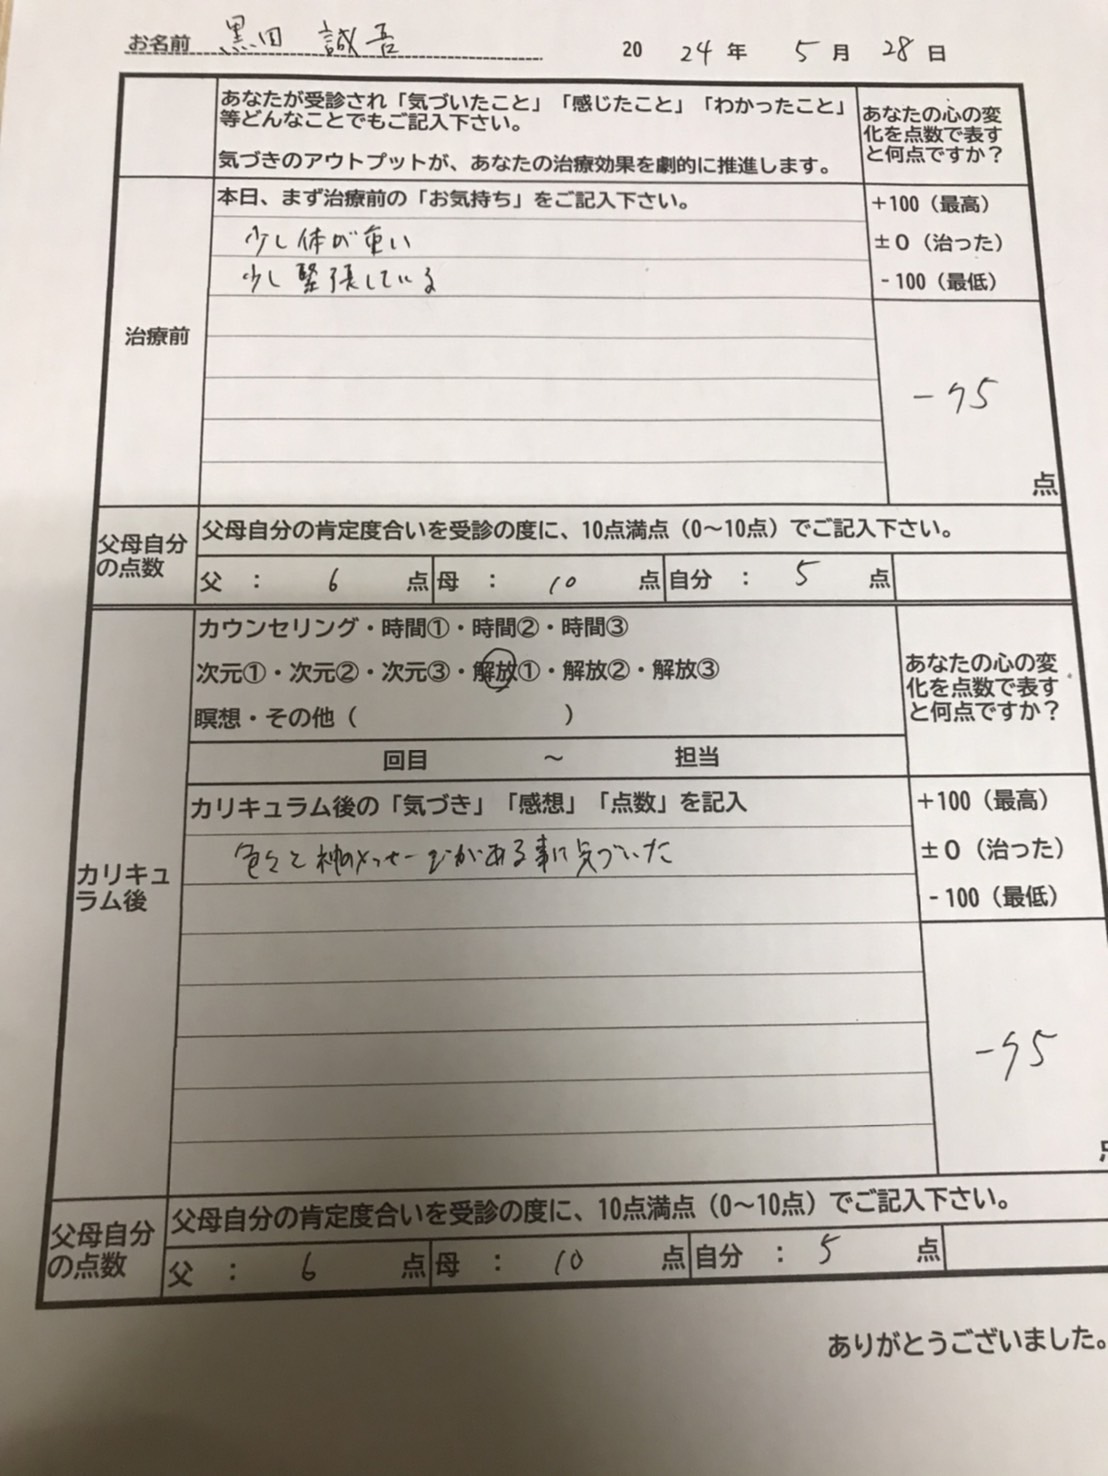 お名前 黒田 誠吾 2024年 5月 28日
あなたが受診され「気づいたこと」「感じたこと」「わかったこと」
等どんなことでもご記入下さい。
気づきのアウトプットが、あなたの治療効果を劇的に推進します。
あなたの心の変
化を点数で表す
と何点ですか？
治療前
本日、まず治療前の「お気持ち」をご記入下さい。
少し体が重い
少し緊張している
+100（最高）
±0（治った）
-100（最低）
-75
点
父母自分
の点数
父母自分の肯定度合いを受診の度に、10点満点（0〜10点）でご記入下さい。
父 ： 6 点 母 ： 10 点 自分 ： 5 点
カウンセリング・時間①・時間②・時間③
次元①・次元②・次元③・解放①・解放②・解放③
瞑想・その他（ ）
回目 〜 担当
あなたの心の変
化を点数で表す
と何点ですか？
カリキュ
ラム後
カリキュラム後の「気づき」「感想」「点数」を記入
色々と神のメッセージがある事に気づいた
+100（最高）
±0（治った）
-100（最低）
-75
父母自分
の点数
父母自分の肯定度合いを受診の度に、10点満点（0〜10点）でご記入下さい。
父 ： 6 点 母 ： 10 点 自分 ： 5 点
ありがとうございました。